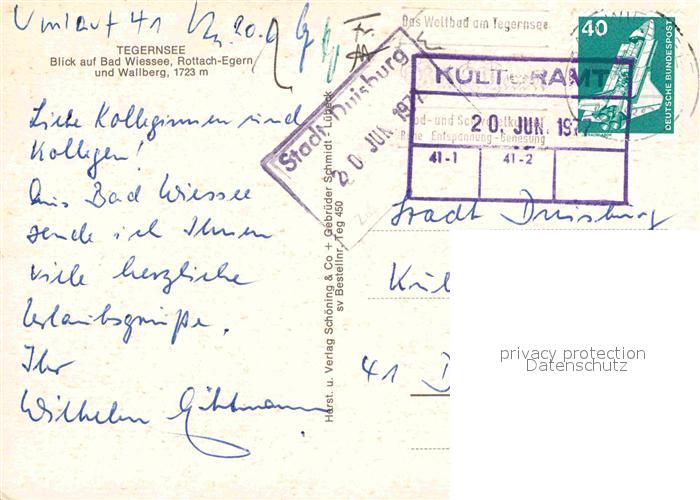 Umlauf 41
TEGERNSEE
Blick auf Bad Wiessee, Rottach-Egern
und Wallberg, 1723 m
Liebe Kolleginnen und
Kollegen!
Aus Bad Wiessee
sende ich Ihnen
viele herzliche
Urlaubsgrüße.
Ihr
Wilhelm
Horst. u. Verlag Schöning & Co + Gebrüder Schmidt · Lübeck
sv Bestellnr. Teg 450
Das Weltbad am Tegernsee
Ruhe Entspannung-Genesung
40
DEUTSCHE BUNDESPOST
Stadt Duisburg
20. JUN. 197
KULTURAMT
20. JUN. 197
41-1 41-2
Stadt Duisburg
Kul
41 D
privacy protection
Datenschutz